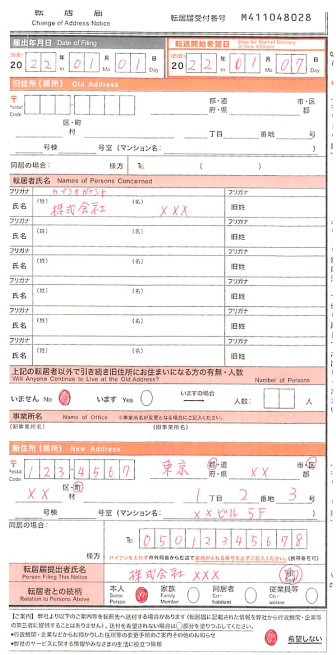 転居届
Change of Address Notice
転居届受付番号 M411048028
届出年月日 Date of Filing
転送開始希望日
20 22 Yr. 01 Mo. 01 Day
20 22 Yr. 01 Mo. 07 Day
旧住所(居所) Old Address
〒
Postal Code
都・道 府・県
市・区 郡
区・町 村
丁目 番地 号
号棟 号室(マンション名: )
同居の場合: 様方 TEL ( )
転居者氏名 Names of Persons Concerned
フリガナ フリガナ
氏名 (姓) 株式会社 (名) xxx 旧姓
フリガナ フリガナ
氏名 (姓) (名) 旧姓
フリガナ フリガナ
氏名 (姓) (名) 旧姓
フリガナ フリガナ
氏名 (姓) (名) 旧姓
フリガナ フリガナ
氏名 (姓) (名) 旧姓
フリガナ フリガナ
氏名 (姓) (名) 旧姓
上記の転居者以外で引き続き旧住所にお住まいになる方の有無・人数
Will Anyone Continue to Live at the Old Address? Number of Persons
いません No います Yes いますの場合 人数: 人
事業所名 Name of Office ※事業所名が変更となる場合にご記入ください。
(新事業所名) (旧事業所名)
新住所(居所) New Address
〒
Postal Code
123-4567 東京 都・道 府・県 xx 市・区 郡
xx 区・町 村 1丁目 2番地 3号
号棟 号室(マンション名: xxビル 5F )
同居の場合: 様方 TEL 05012345678
転居届提出者氏名
Person Filing This Notice
株式会社 xxx
転居者との続柄
Relation to Persons Above
本人 Same Person
家族 Family Member
同居者 Co-habitant
従業員等 Co-worker
【ご案内】 弊社より以下のご案内等を転送先へ送付する場合があります。(転居届に記載された情報を弊社から行政機関・企業等の第三者に提供することはありません。)送付を希望されない場合は〇部分を塗りつぶしてください。
●行政機関・企業などからお預かりした住所等の変更手続のご案内その他のお知らせ
●弊社のサービスに関する情報やみなさまの生活に役立つ情報
希望しない